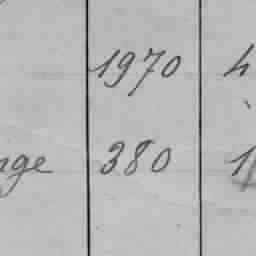 1970 4
nge 380 1